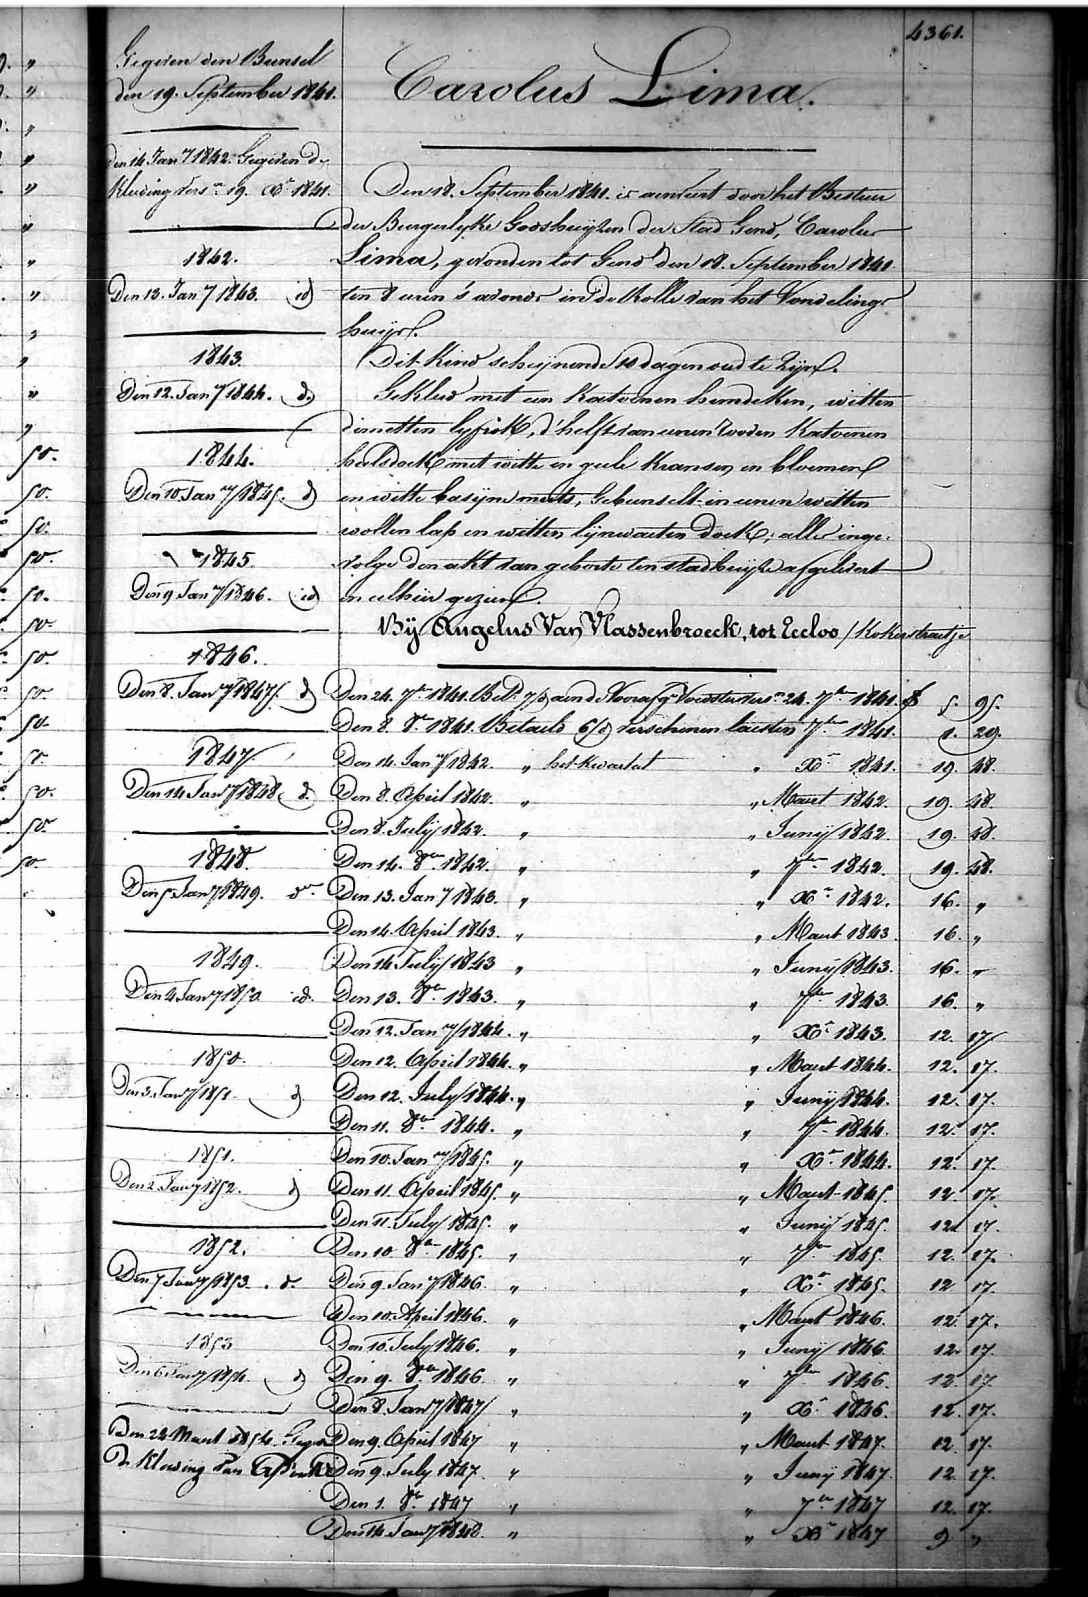 4361.
Carolus Lima.
Gegeven den Bunsel
den 19. September 1841.
den 14 Jan 7 1842. Gegeven de
Kleeding vers. 19. Xr 1841.
1842.
Den 13. Jan 7 1843. id
1843.
Den 12. Jan 7 1844. id
1844.
Den 10 Jan 7 1845. id
1845.
Den 9 Jan 7 1846. id
1846.
Den 8. Jan 7 1847. id
1847
Den 14 Jan 7 1848 id
1848.
Den 5 Jan 7 1849. do
1849.
Den 4 Jan 7 1850 id.
1850.
Den 3. Jan 7 1851. id
1851.
Den 2 Jan 7 1852. id
1852.
Den 7 Jan 7 1853. do
1853
Den 6 Jan 7 1854. id
Den 24 Maart 1854. Gegeven
de Kleeding van
Den 18. September 1841. is aenveert door het Bestier
der Burgerlyke Godshuyzen der Stad Gend, Carolus
Lima, gevonden tot Gend den 18. September 1841
ten 8 uren 's avonds in de Rolle van het Vondeling-
huys.
Dit Kind schynende 10 dagen oud te zyn.
Gekleed met een Katoenen hemdeken, witten
dimetten lyfrok, d'helft van eenen rooden Katoenen
halsdoek met witte en geele Kransen en bloemen
en witte basyne muts, Gebunselt in eenen witten
wollen lap en witten lynwaeten doek; alles inge-
volge den akt van geboorte ten stadhuyze afgelevert
en alhier gezien.
Bij Angelus Van Vlassenbroeck, tot Eecloo / Kokerstraetje
Den 24. 7br 1841. Betd. aen de Voorafge Voedster vers. 24. 7br 1841. f 5. 95.
Den 8. 8r 1841. Betaeld 6/d verschenen laesten 7br 1841. 1. 29.
Den 14. Jan 7 1842. " het kwartael " Xr 1841. 19. 48.
Den 8. April 1842. " " Maert 1842. 19. 48.
Den 8. July 1842. " " Junij 1842. 19. 48.
Den 14. 8br 1842. " " 7br 1842. 19. 48.
Den 13. Jan 7 1843. " " Xr 1842. 16. "
Den 14. April 1843. " " Maert 1843. 16. "
Den 14. July 1843 " " Junij 1843. 16. "
Den 13. 8br 1843. " " 7br 1843. 16. "
Den 12. Jan 7 1844. " " Xr 1843. 12. 17.
Den 12. April 1844. " " Maert 1844. 12. 17.
Den 12. July 1844. " " Junij 1844. 12. 17.
Den 11. 8br 1844. " " 7br 1844. 12. 17.
Den 10. Jan 7 1845. " " Xr 1844. 12. 17.
Den 11. April 1845. " " Maert 1845. 12. 17.
Den 11. July 1845. " " Junij 1845. 12. 17.
Den 10 8br 1845. " " 7br 1845. 12. 17.
Den 9 Jan 7 1846. " " Xr 1845. 12 17.
Den 10. April 1846. " " Maert 1846. 12. 17.
Den 10. July 1846. " " Junij 1846. 12. 17.
Den 9. 8br 1846 " " 7br 1846. 12. 17.
Den 8. Jan 7 1847 " " Xr 1846. 12. 17.
Den 9. April 1847 " " Maert 1847. 12 17.
Den 9. July 1847. " " Junij 1847. 12. 17.
Den 1. 8br 1847 " " 7br 1847 12. 17.
Den 14 Jan 7 1848. " " Xbr 1847 9 "